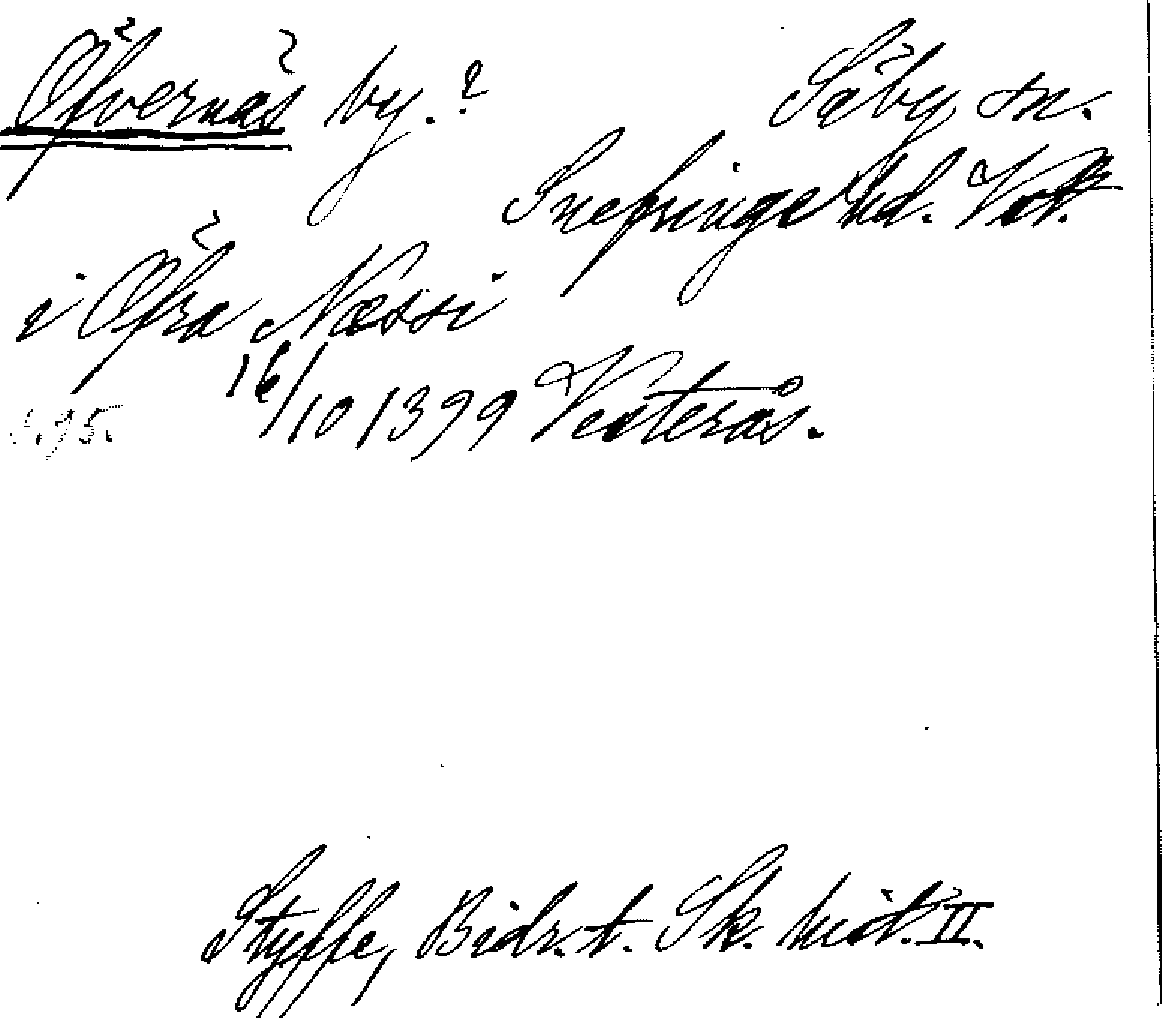 Öfvernäs by.? Säby sn.
Snefringe hd. Vstl.
i Öfra Næssi
16/10 1399 Vesterås.
s. 95.
Styffe, Bidr. t. Sk. hist. II.